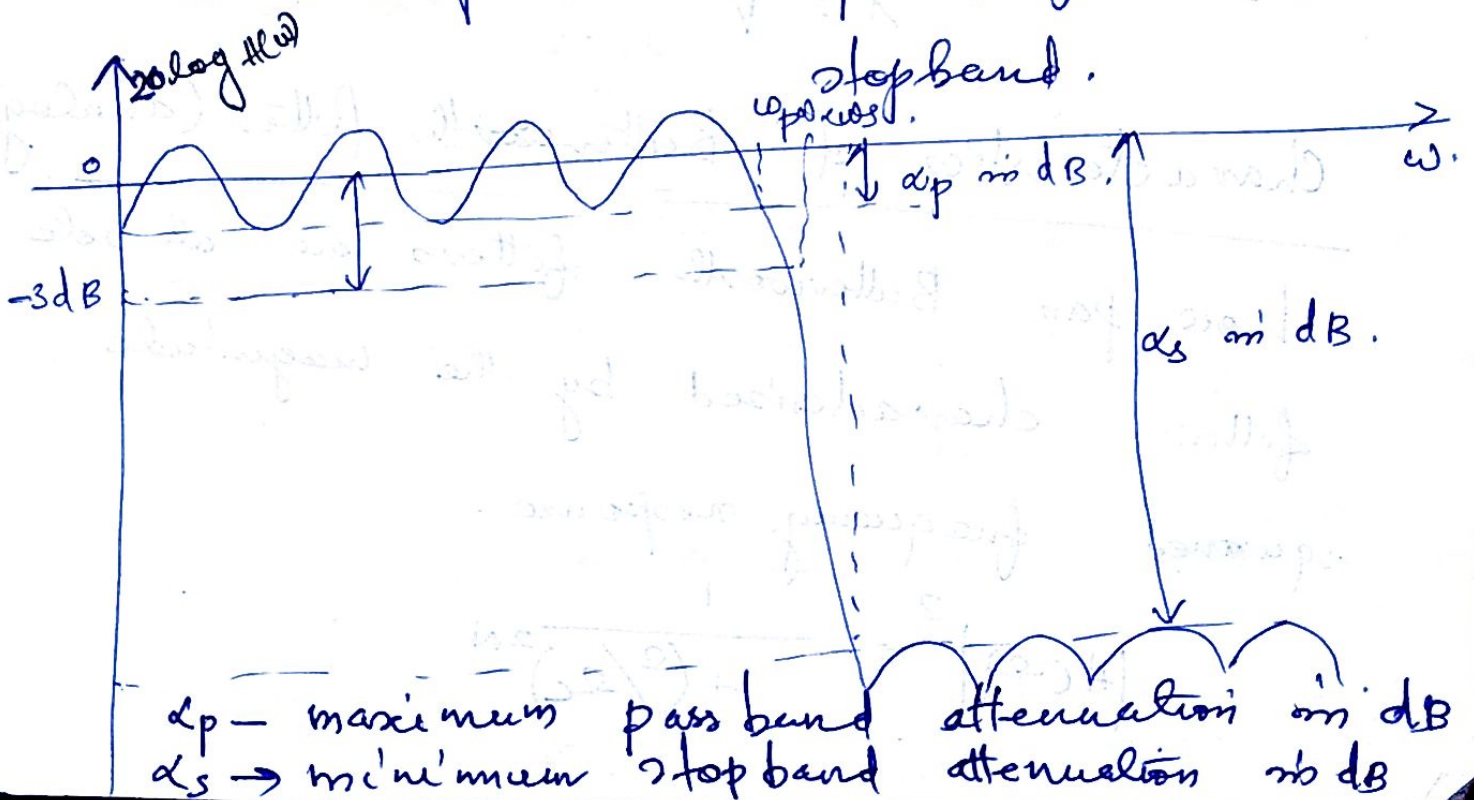 20 log H(ω)
stopband.
ωp
0
αp in dB.
ω.
-3dB
αs in dB.
αp – maximum pass band attenuation in dB
αs → minimum stopband attenuation in dB